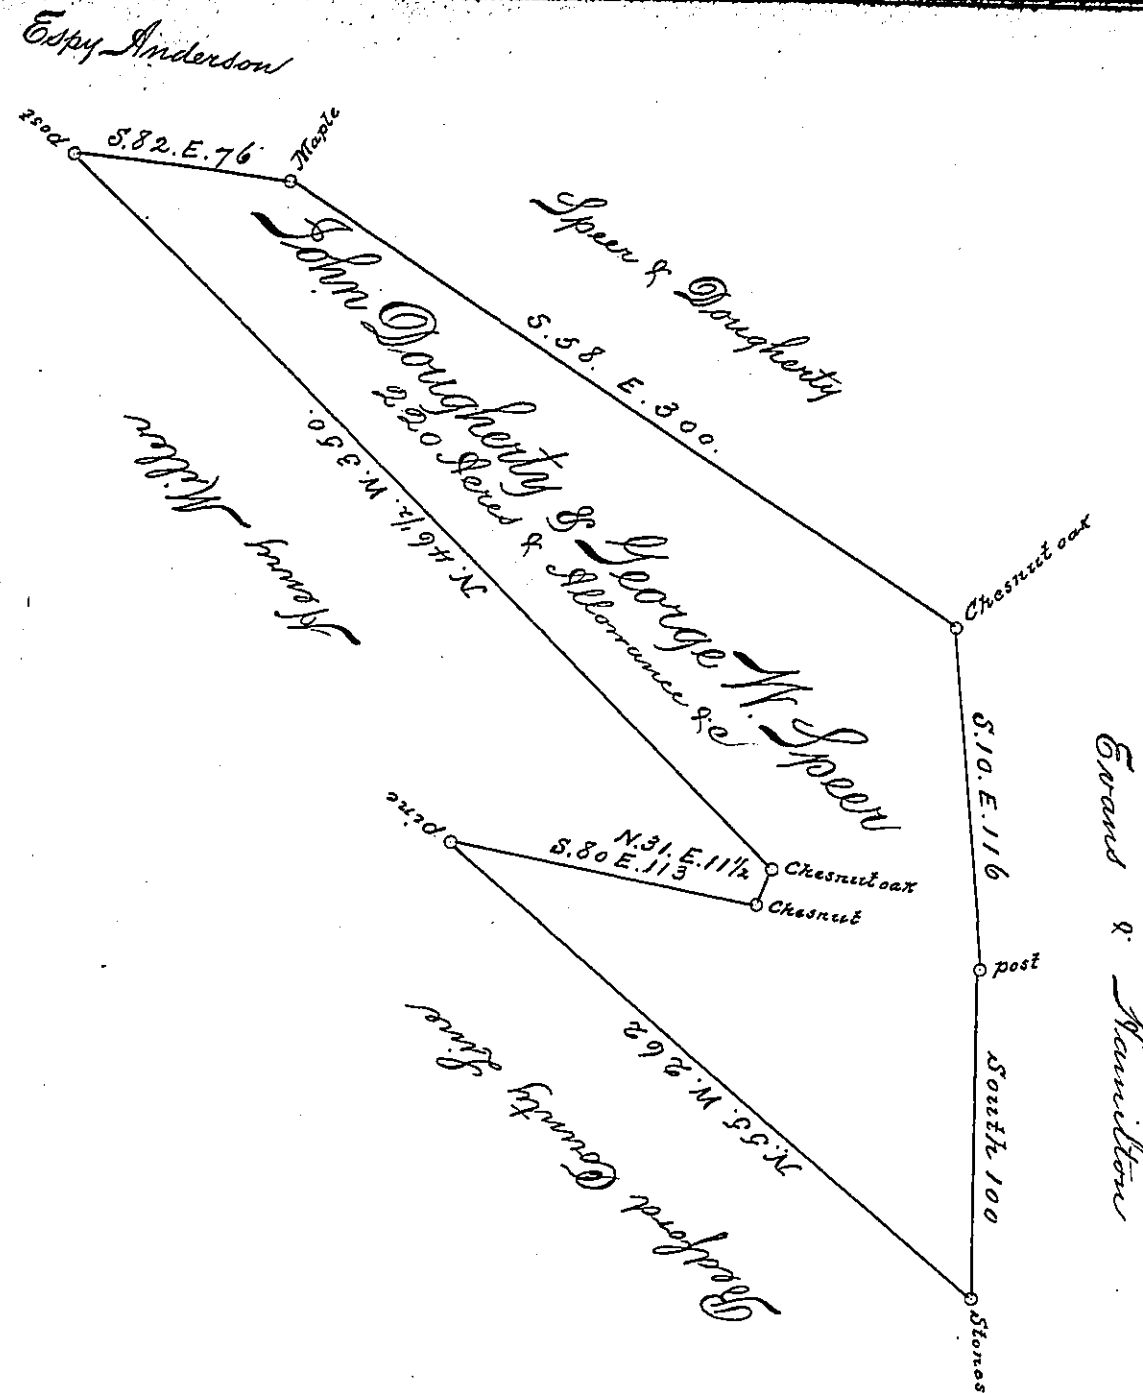 Espy Anderson
Post
S.82.E.76
Maple
Speer & Dougherty
S.58.E.300.
John Dougherty & George W. Speer
220 Acres & Allowance &c
N.46½.W.350.
Henry Miller
Chesnut oak
S.10.E.116
Evans & Hamilton
post
South 100
Stones
N.55.W.262
Bedford County Line
pine
S.80 E.113
N.31.E.11½
Chesnut oak
Chesnut